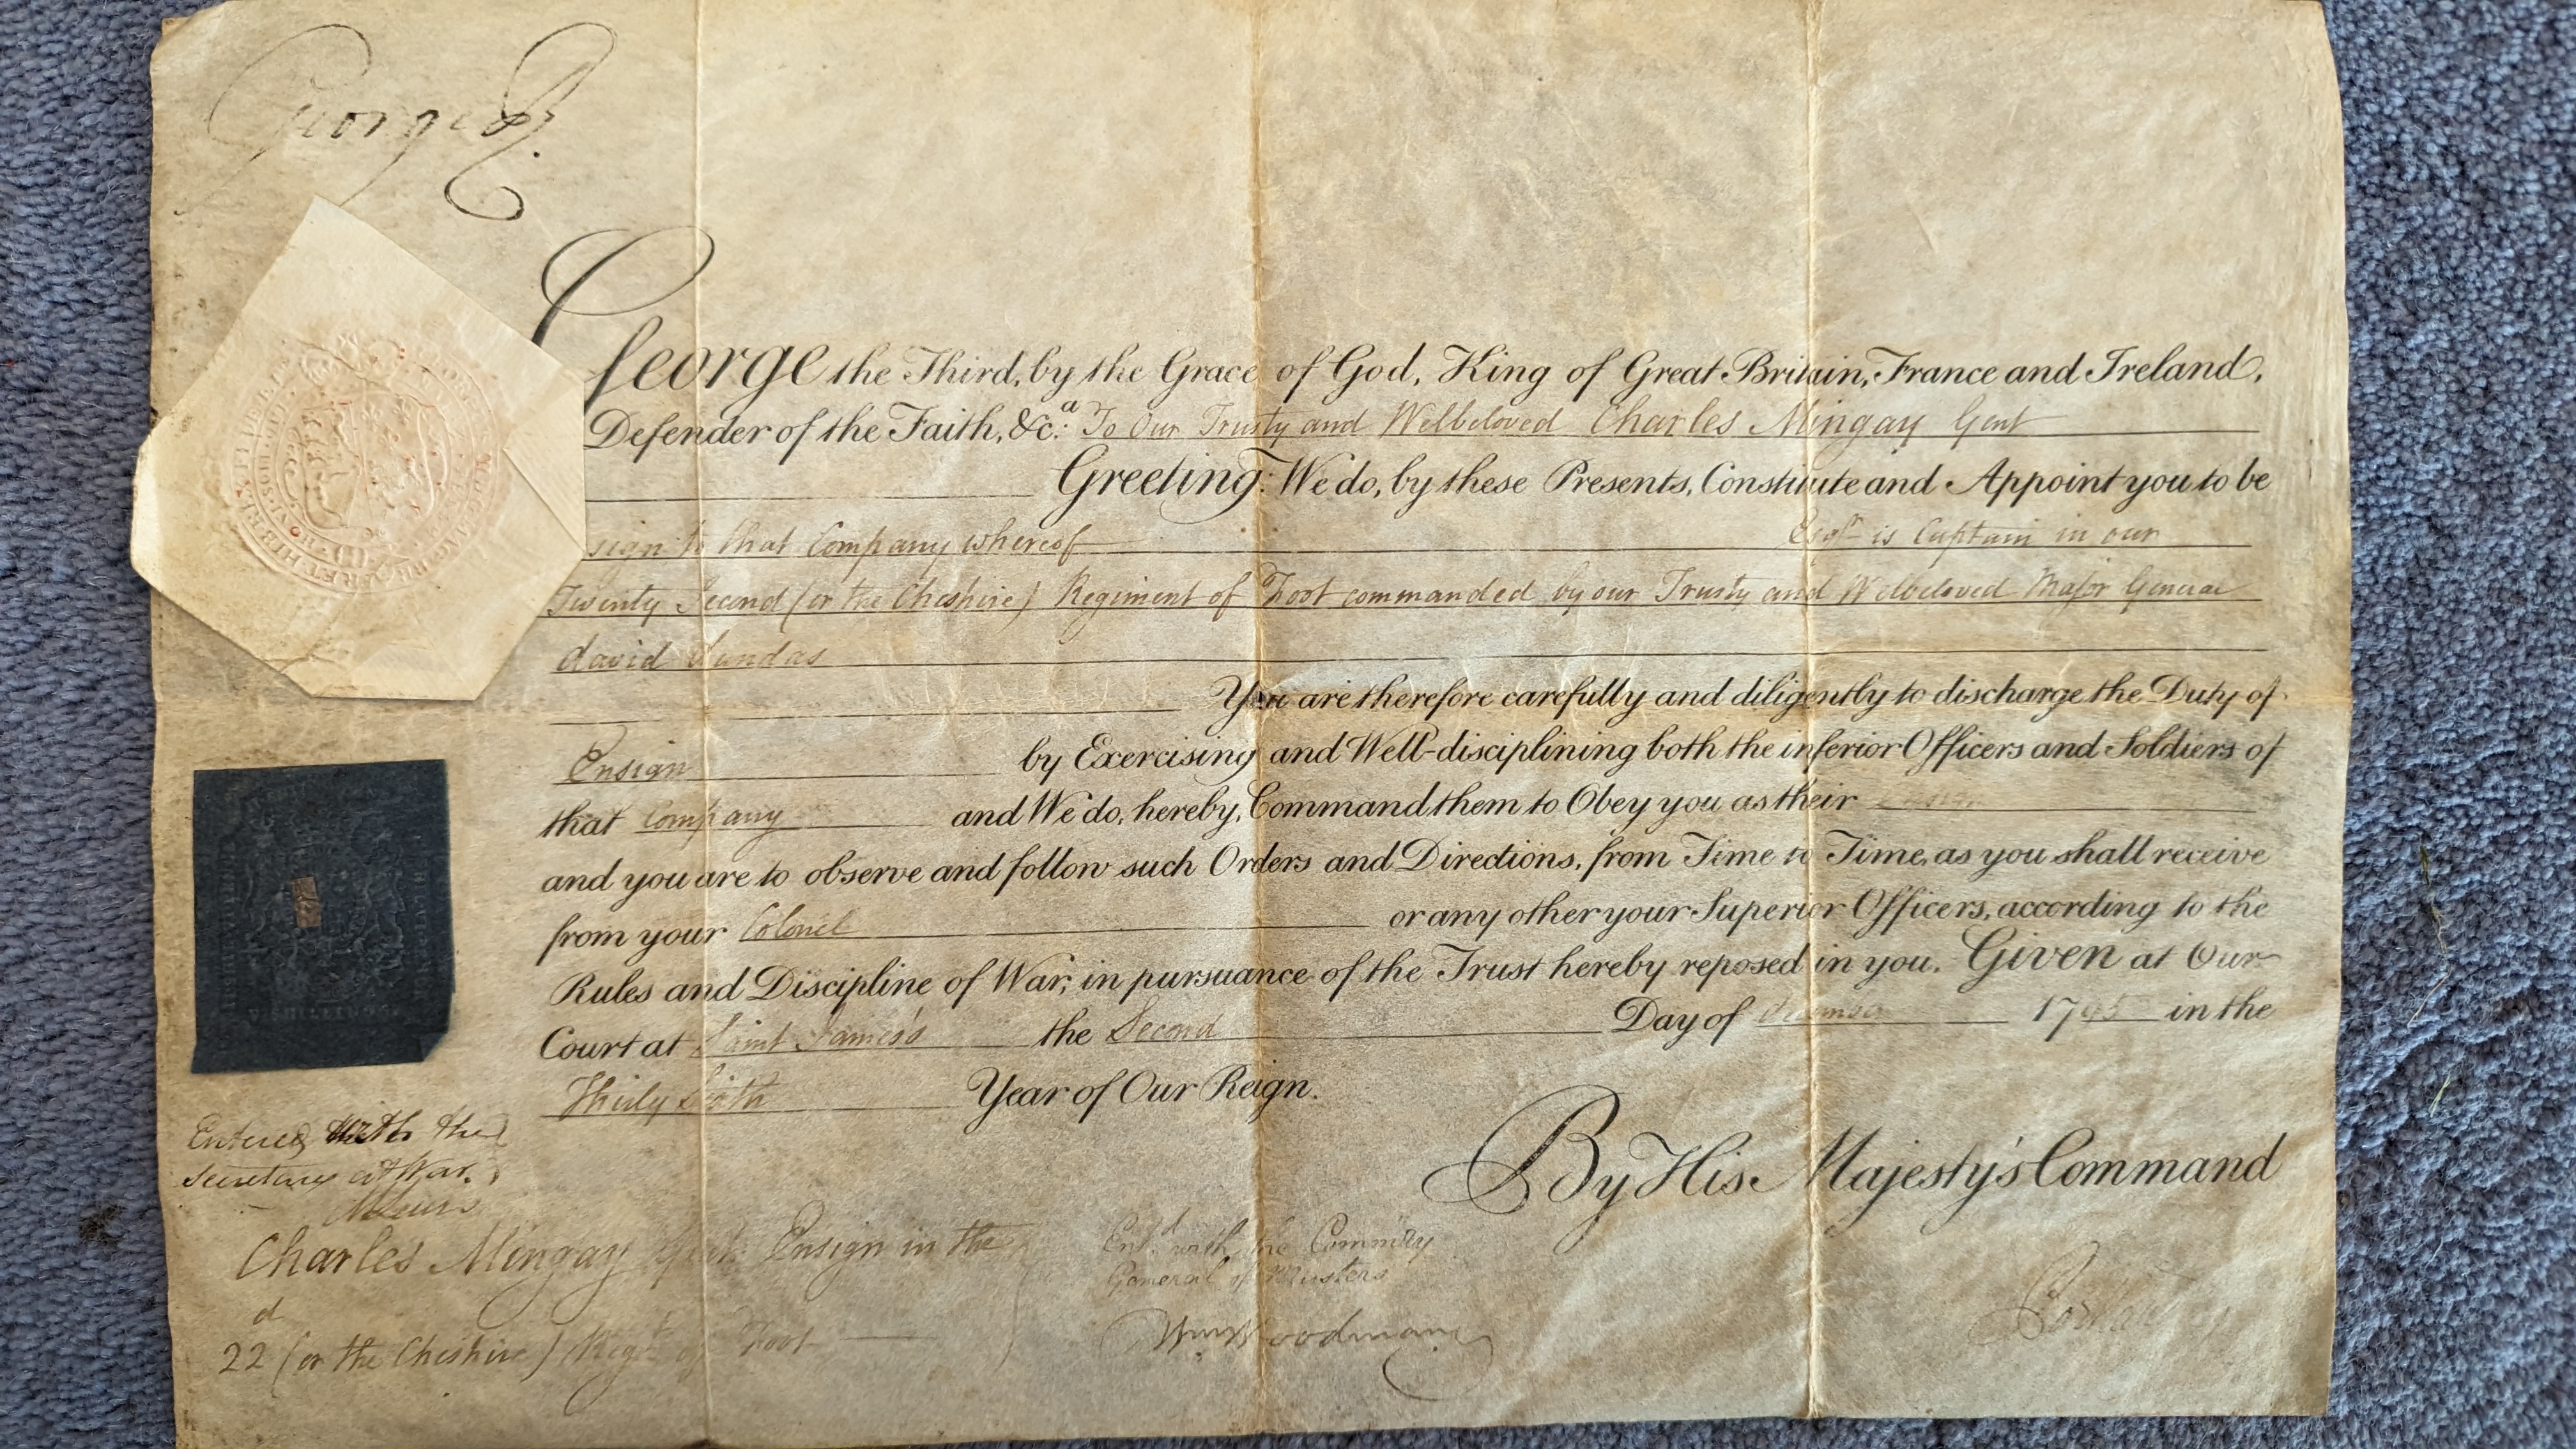 George R
George the Third, by the Grace of God, King of Great Britain, France and Ireland,
Defender of the Faith, &c.a To Our Trusty and Welbeloved Charles Mingay Gent
Greeting: We do, by these Presents, Constitute and Appoint you to be
sign to that Company whereof Esqr is Captain in our
Twenty Second (or the Cheshire) Regiment of Foot commanded by our Trusty and Welbeloved Major General
David Dundas
You are therefore carefully and diligently to discharge the Duty of
Ensign by Exercising and Well-disciplining both the inferior Officers and Soldiers of
that Company and We do, hereby, Command them to Obey you as their
and you are to observe and follow such Orders and Directions, from Time to Time, as you shall receive
from your Colonel or any other your Superior Officers, according to the
Rules and Discipline of War, in pursuance of the Trust hereby reposed in you. Given at Our
Court at Saint James's the Second Day of 1795 in the
Thirty Sixth Year of Our Reign.
By His Majesty's Command
V SHILLINGS
Entered with the
Secretary at War.
Charles Mingay Gent. Ensign in the
22d (or the Cheshire) Regt of Foot
Entd with the Commry
General of Musters
Wm Woodman
Portland